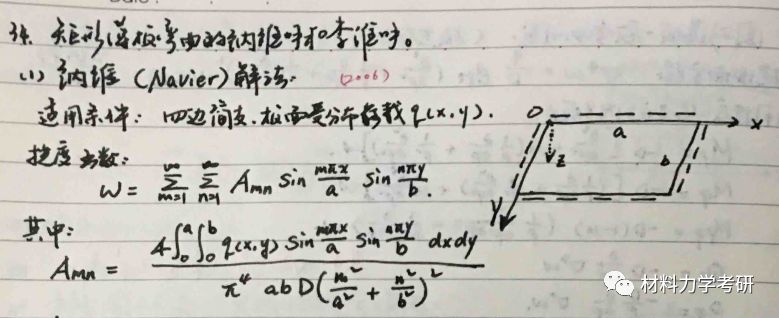 34. 矩形薄板弯曲的纳维叶和李维叶。
(1) 纳维 (Navier) 解法. (2006)
适用条件: 四边简支, 板面受分布荷载 q(x,y).
挠度函数:
W = ∞ Σ m=1 ∞ Σ n=1 Amn sin mπx/a sin nπy/b.
其中:
Amn = 4∫₀ᵃ∫₀ᵇ q(x,y) sin mπx/a sin nπy/b dxdy / π⁴ abD(m²/a² + n²/b²)²
O a x
z b
y
材料力学考研